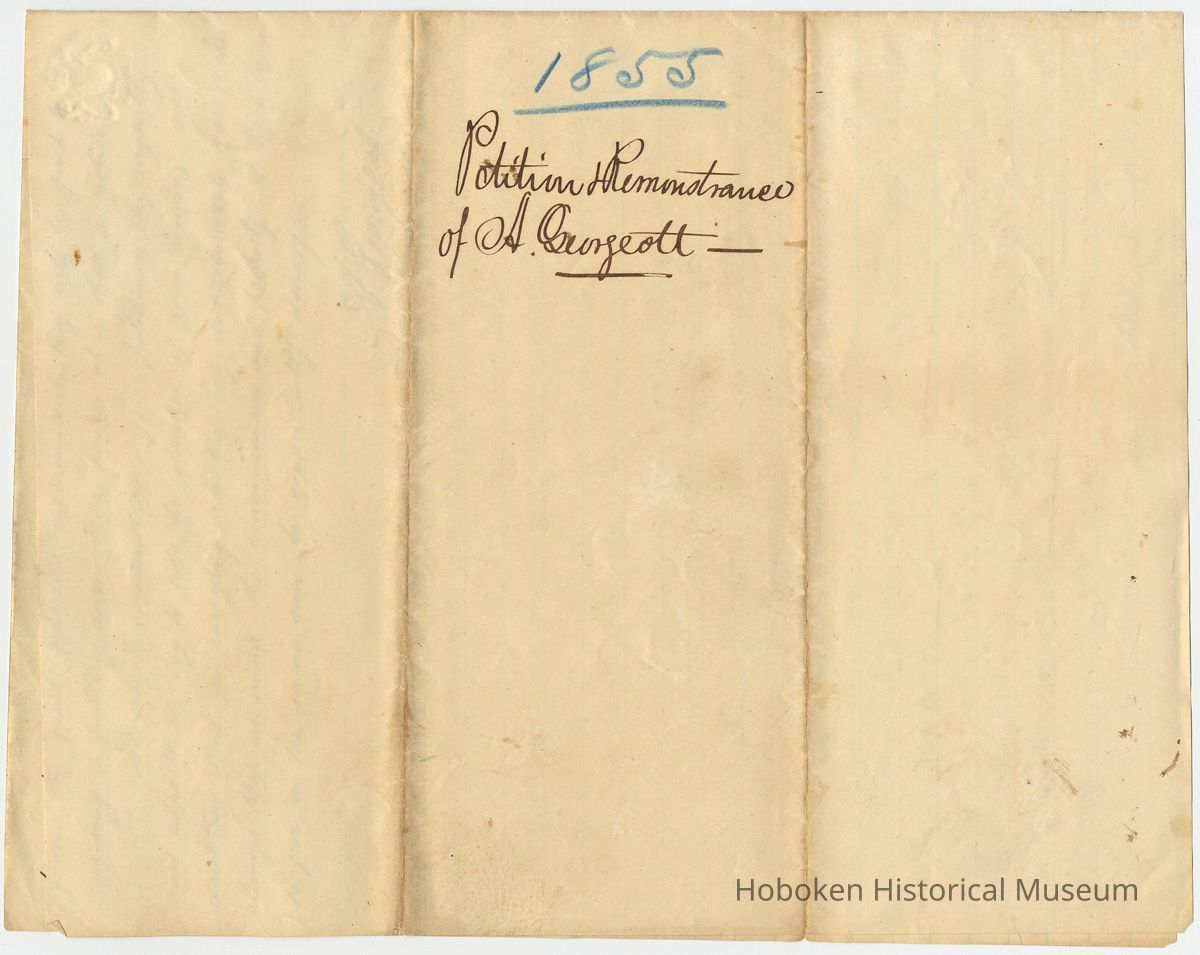 1855
Petition & Remonstrance
of A. Georgeott —
Hoboken Historical Museum